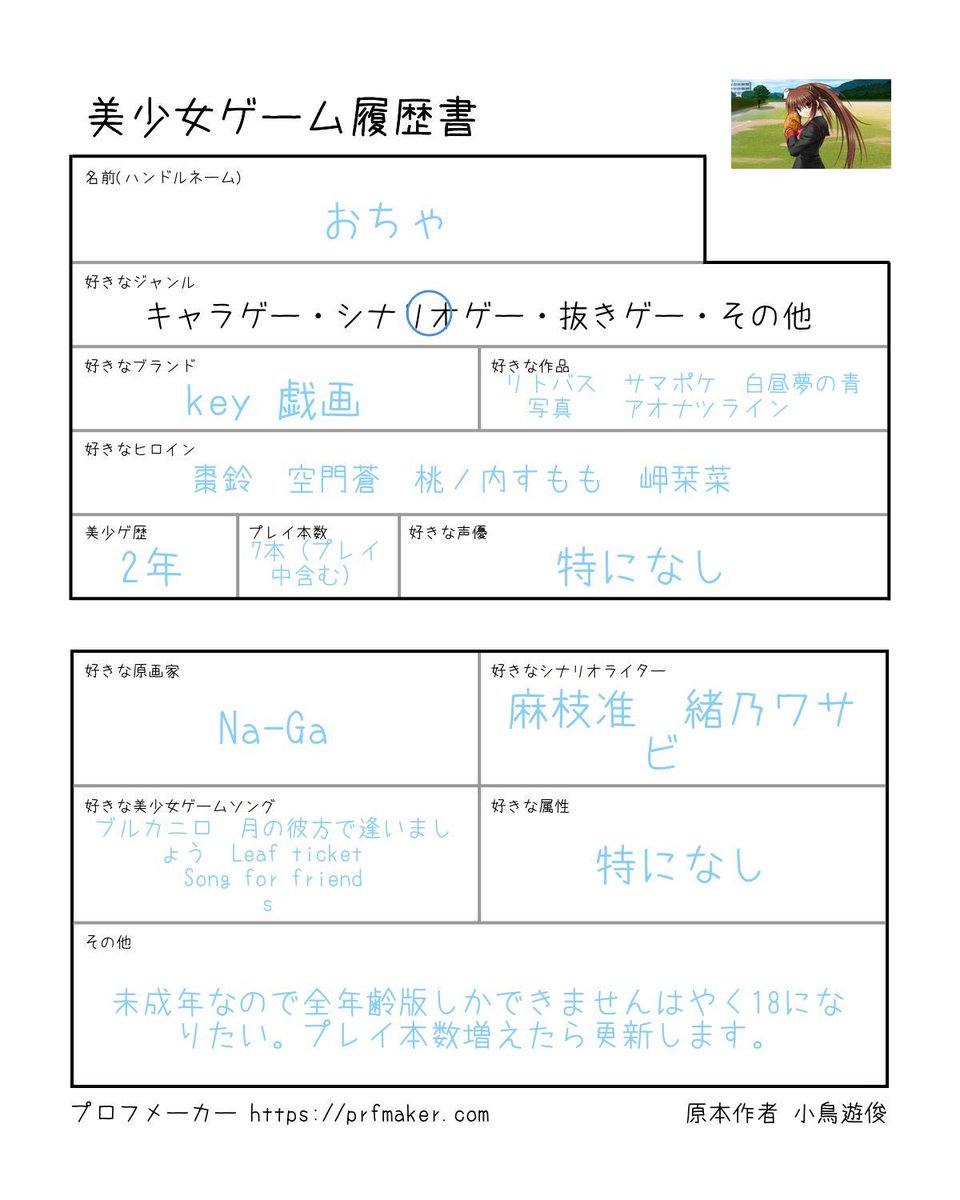 美少女ゲーム履歴書
名前(ハンドルネーム)
おちゃ
好きなジャンル
キャラゲー・シナリオゲー・抜きゲー・その他
好きなブランド
key 戯画
好きな作品
リトバス　サマポケ　白昼夢の青
写真　　アオナツライン
好きなヒロイン
棗鈴　空門蒼　桃ノ内すもも　岬栞菜
美少ゲ歴
2年
プレイ本数
7本（プレイ
中含む）
好きな声優
特になし
好きな原画家
Na-Ga
好きなシナリオライター
麻枝准　緒乃ワサ
ビ
好きな美少女ゲームソング
ブルカニロ　月の彼方で逢いまし
ょう　Leaf ticket
Song for friend
s
好きな属性
特になし
その他
未成年なので全年齢版しかできませんはやく18にな
りたい。プレイ本数増えたら更新します。
プロフメーカー https://prfmaker.com
原本作者 小鳥遊俊